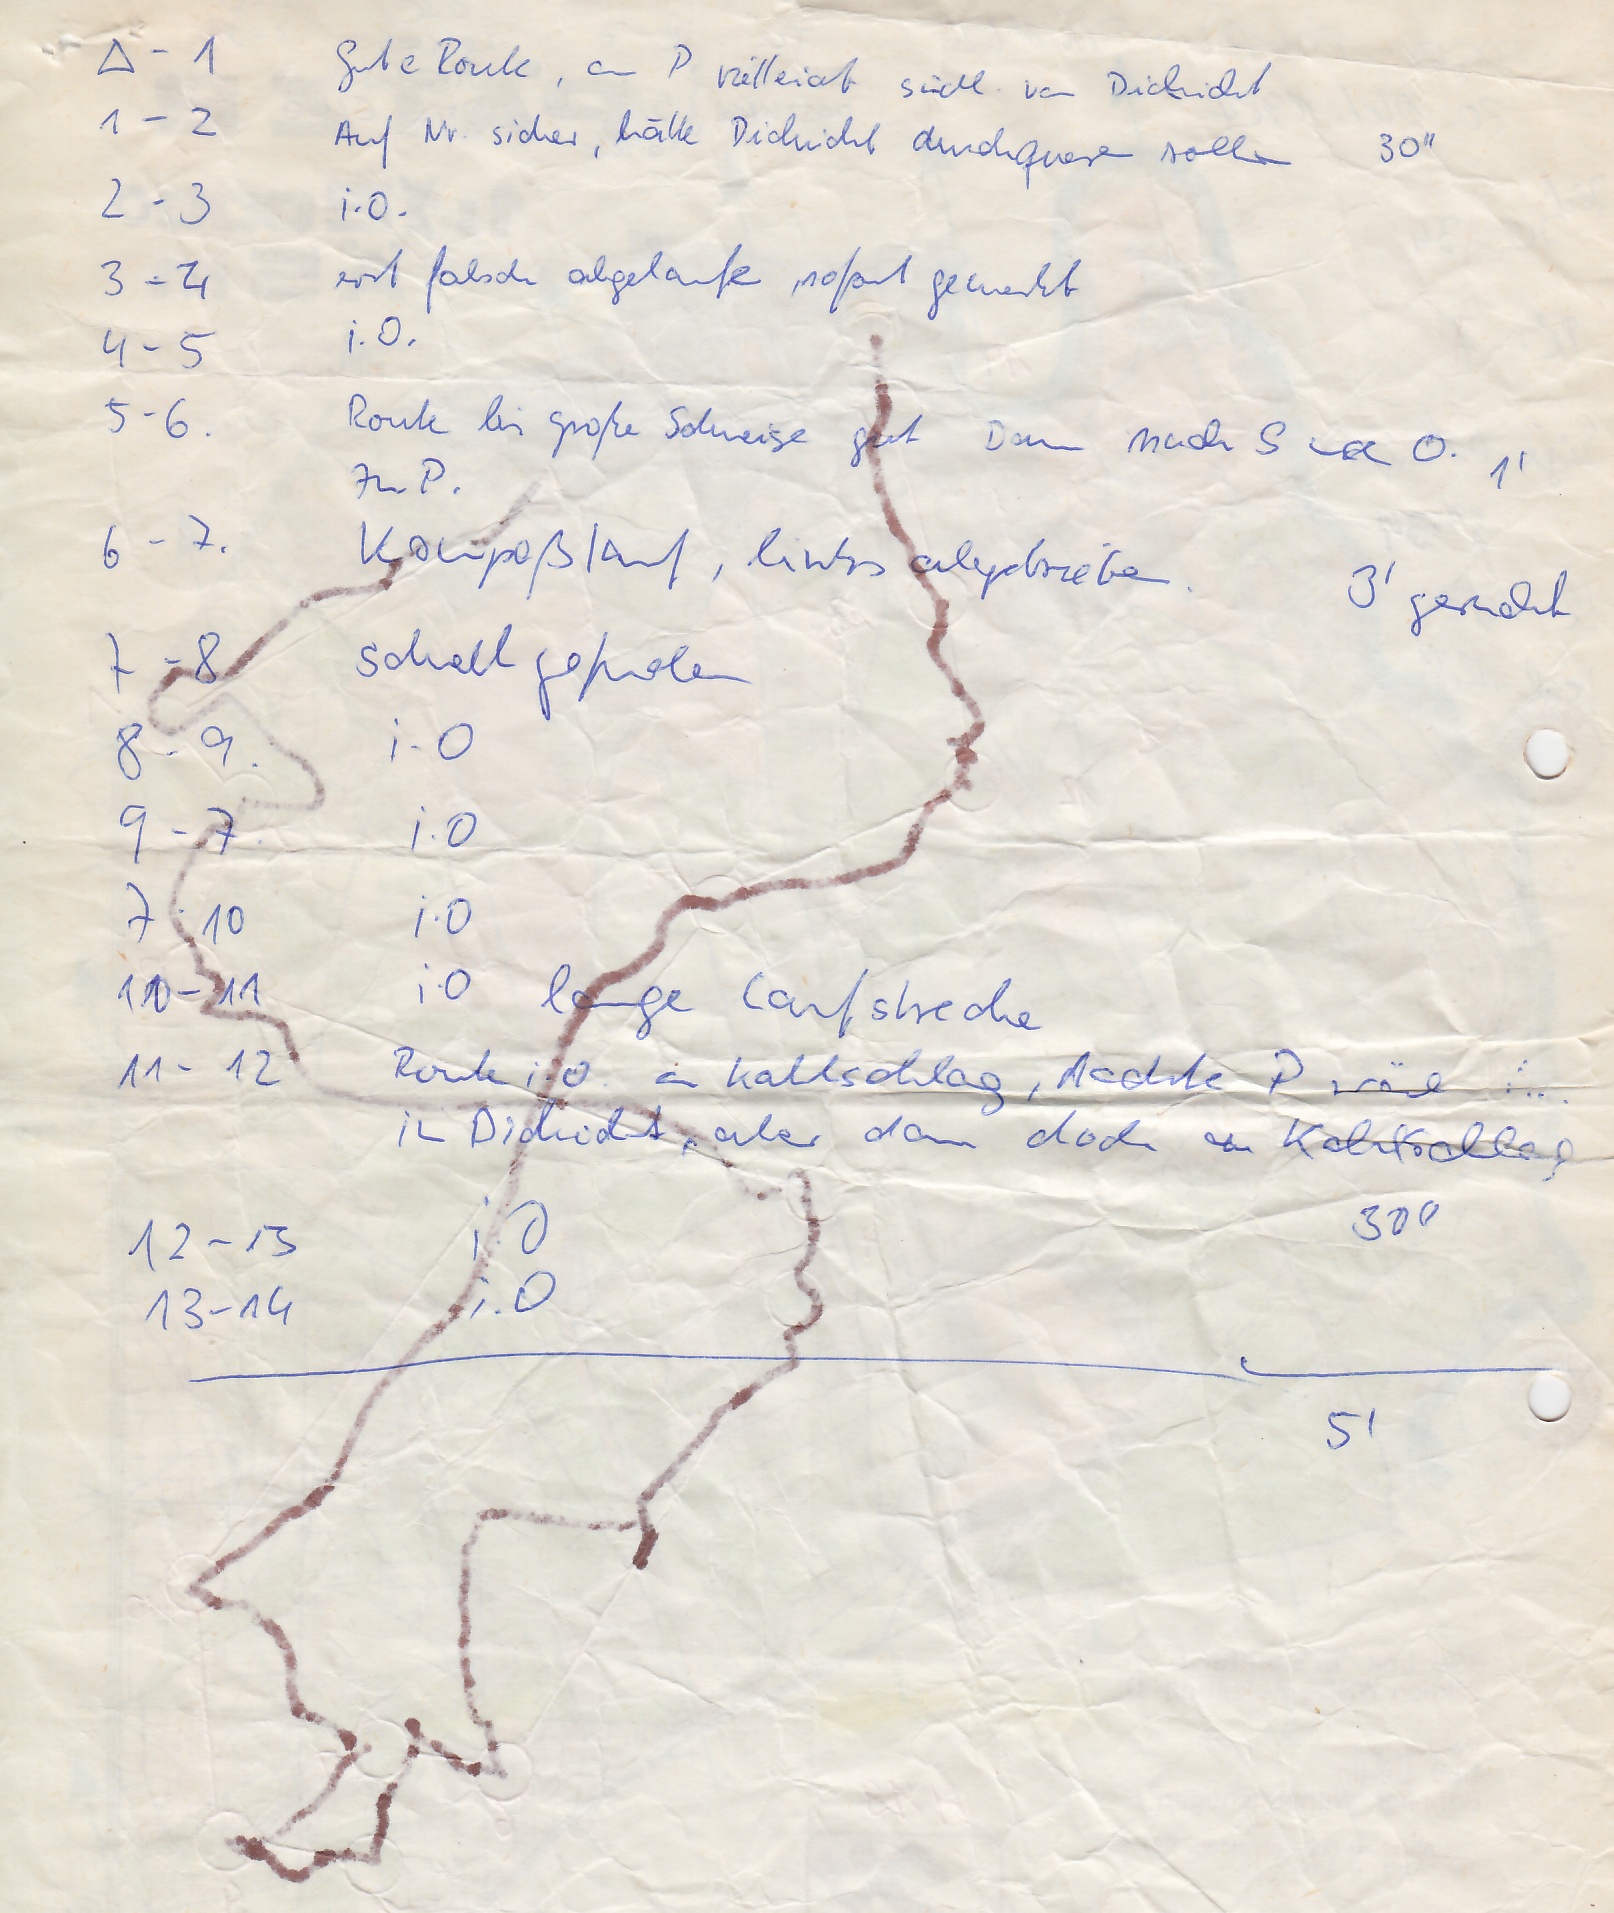 Δ - 1 Gute Route, am P vielleicht südl. von Dickicht
1 - 2 Auf Nr. sicher, hätte Dickicht durchqueren sollen 30"
2 - 3 i.O.
3 - 4 erst falsch abgelaufen, sofort gemerkt
4 - 5 i.O.
5 - 6. Route bis große Schneise gut Dann nach S O. 1'
zu P.
6 - 7. Kompaßlauf, links abgetrieben. 3' gesucht
7 - 8 schnell gefunden
8 - 9. i.O
9 - 7 i.O
7 - 10 i.O
10 - 11 i.O lange Laufstrecke
11 - 12 Route i.O. Kahlschlag, dachte P wäre
in Dickicht, aber dann doch am Kahlschlag
30"
12 - 13 i.O
13 - 14 i.O
5'